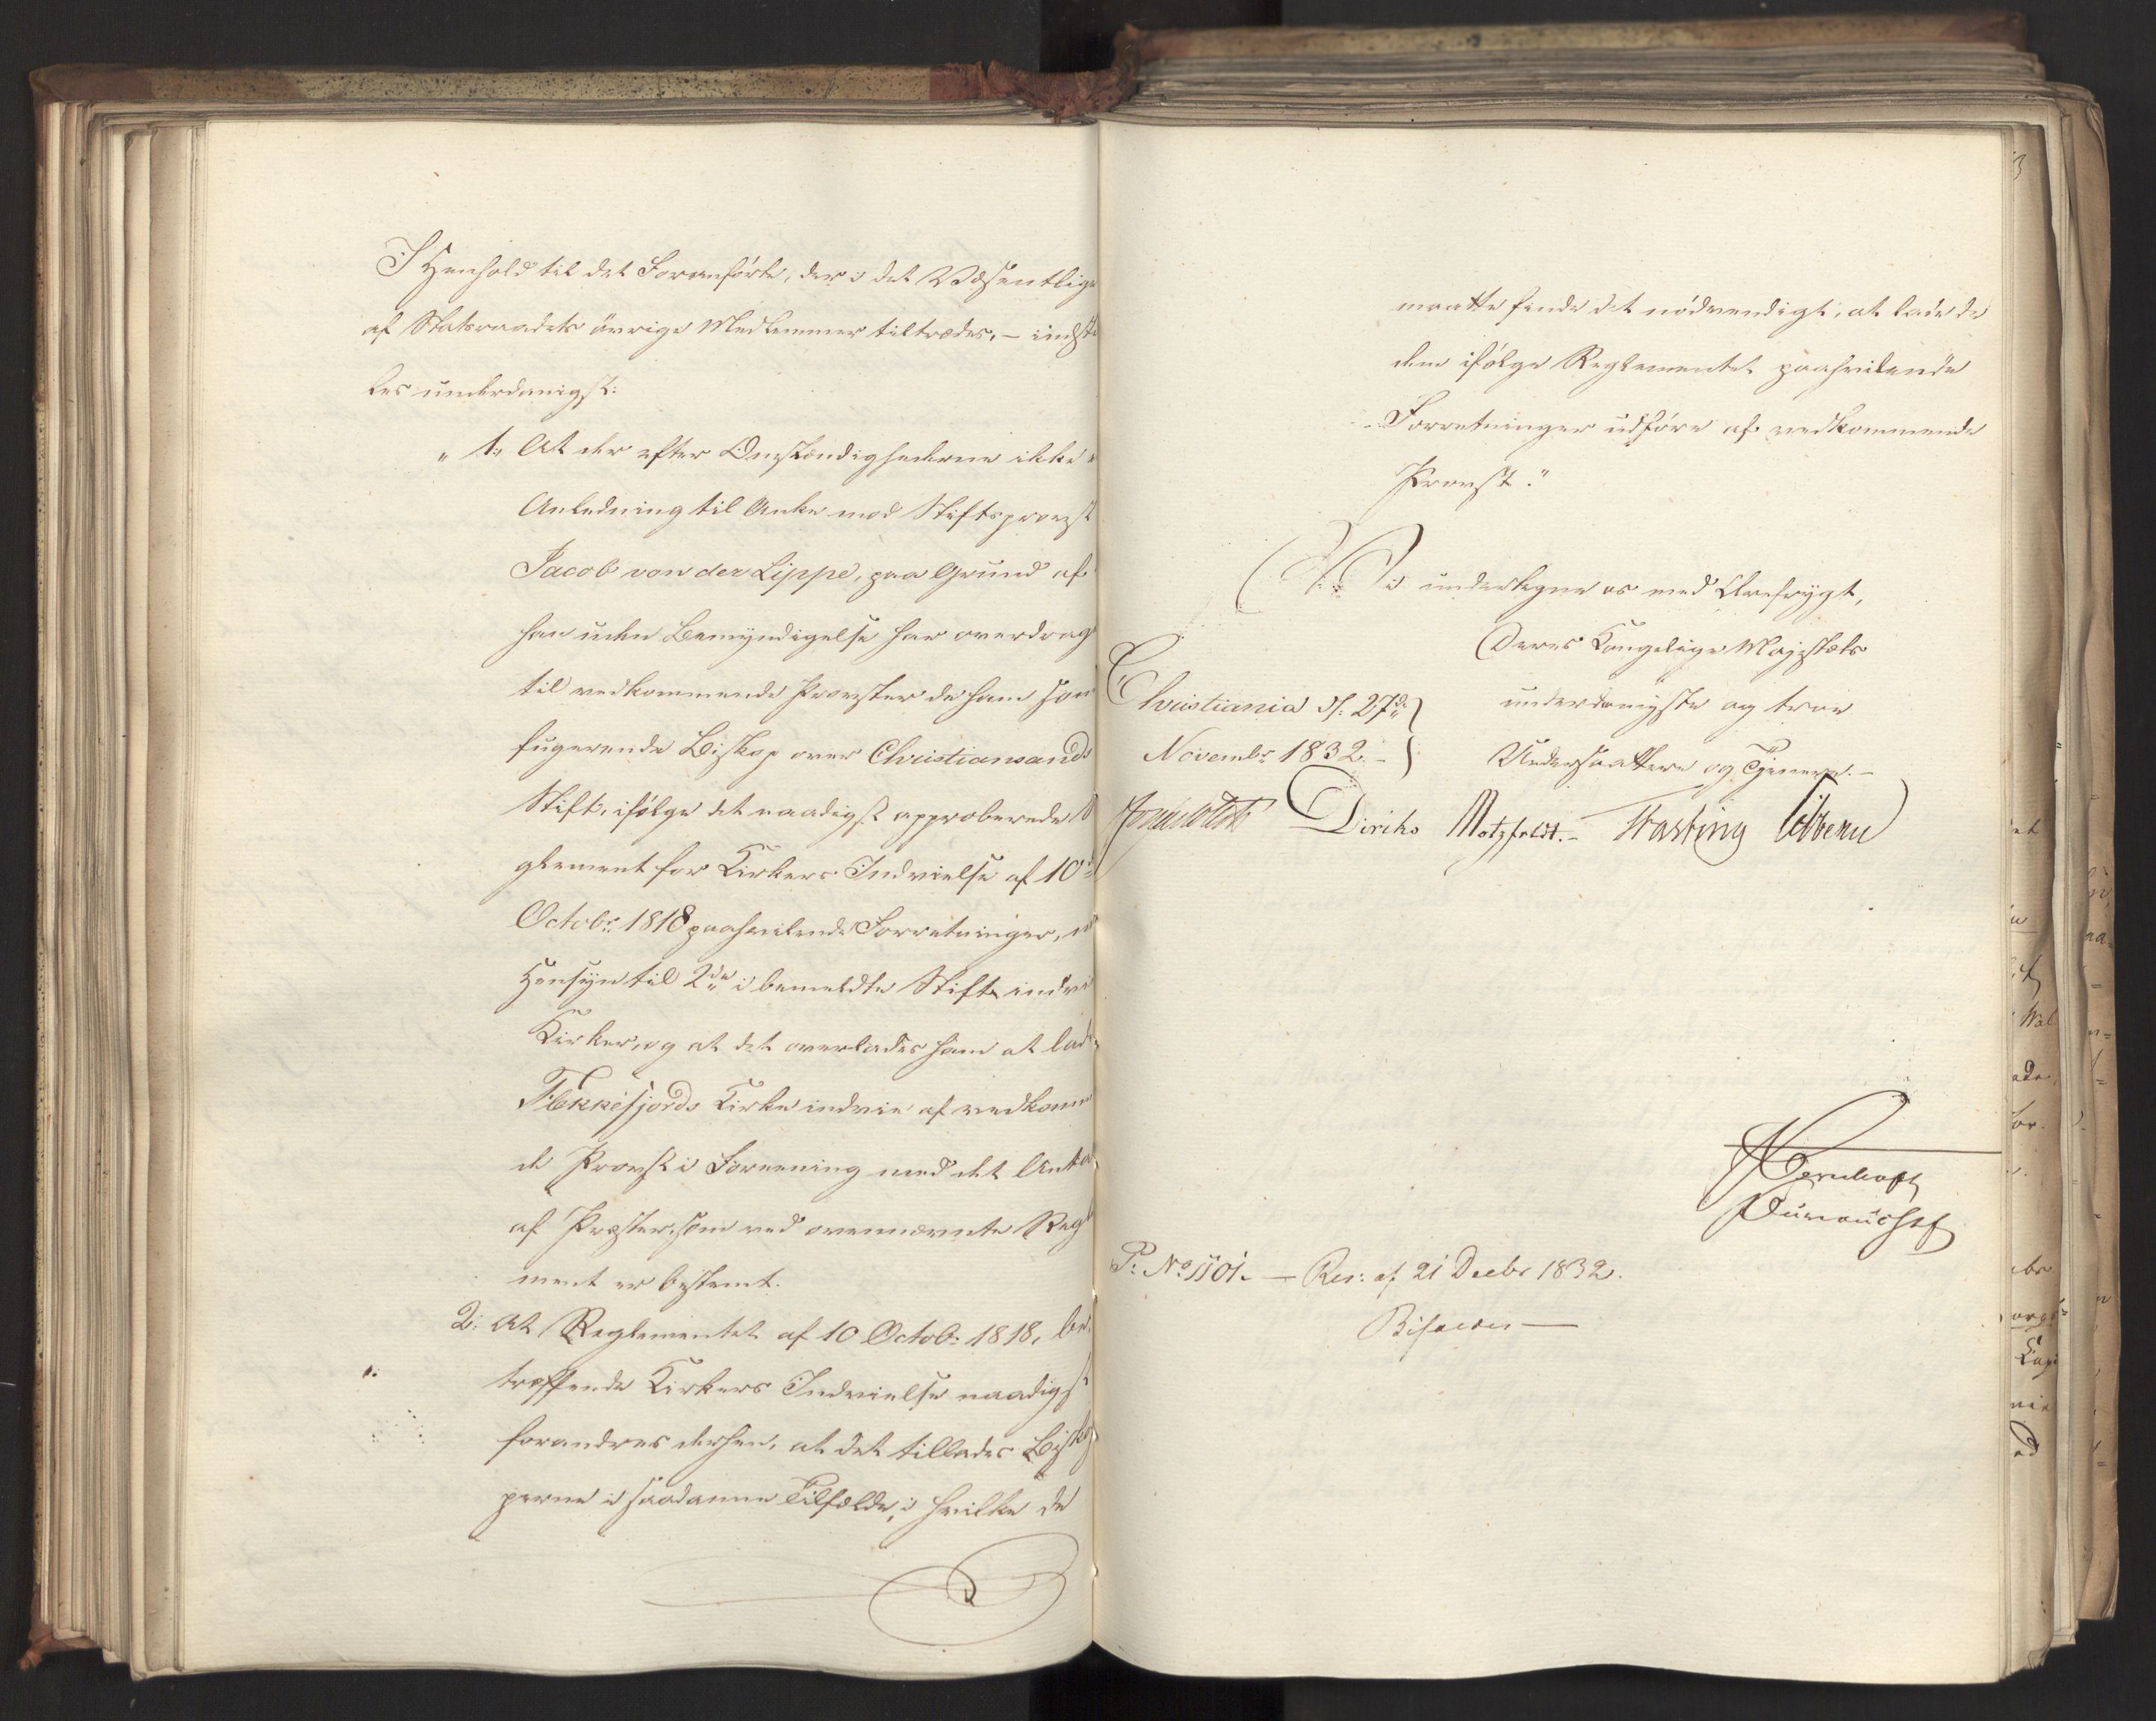 I Henhold til det Foranførte, der i det Væsentlige
af Statsraadets øvrige Medlemmer tiltrædes, – indstil
les underdanigst:
„ 1. At der efter Omstændighederne ikke er
Anledning til Anke mod Stiftsprovst
Jacob von der Lippe, paa Grund af
han uden Bemyndigelse har overdraget
til vedkommende Provster de ham som
fungerende Biskop over Christiansands
Stift, ifølge det naadigst approberede Re
glement for Kirkers Indvielse af 10de
Octobr: 1818 paahvilende Forretninger, m
Hensyn til 2de i bemeldte Stift indvi
Kirker, og at det overlades ham at lade
Flekkefjords Kirke indvie af vedkommen
de Provst i Forening med det Antal
af Præster, som ved ovennævnte Regle
ment er bestemt.
2: At Reglementet af 10 Octob: 1818, be-
træffende Kirkers Indvielse naadigst
forandres derhen, at det tillades Bisko
perne i saadanne Tilfælde, i hvilke de
maatte finde det nødvendigt, at lade de
dem ifølge Reglementet paahvilende
Forretninger udføre af vedkommende
Provst."
Vi undertegne os med Ærefrygt,
Deres Kongelige Majestæts
Christiania d. 27de
underdanigste og troe
Novembr 1832. –
Undersaattere og Tjenere. –
Diriks Motzfeldt. – Vibe
P: No 1101. – Res: af 21 Decbr 1832.
Bifaldes –